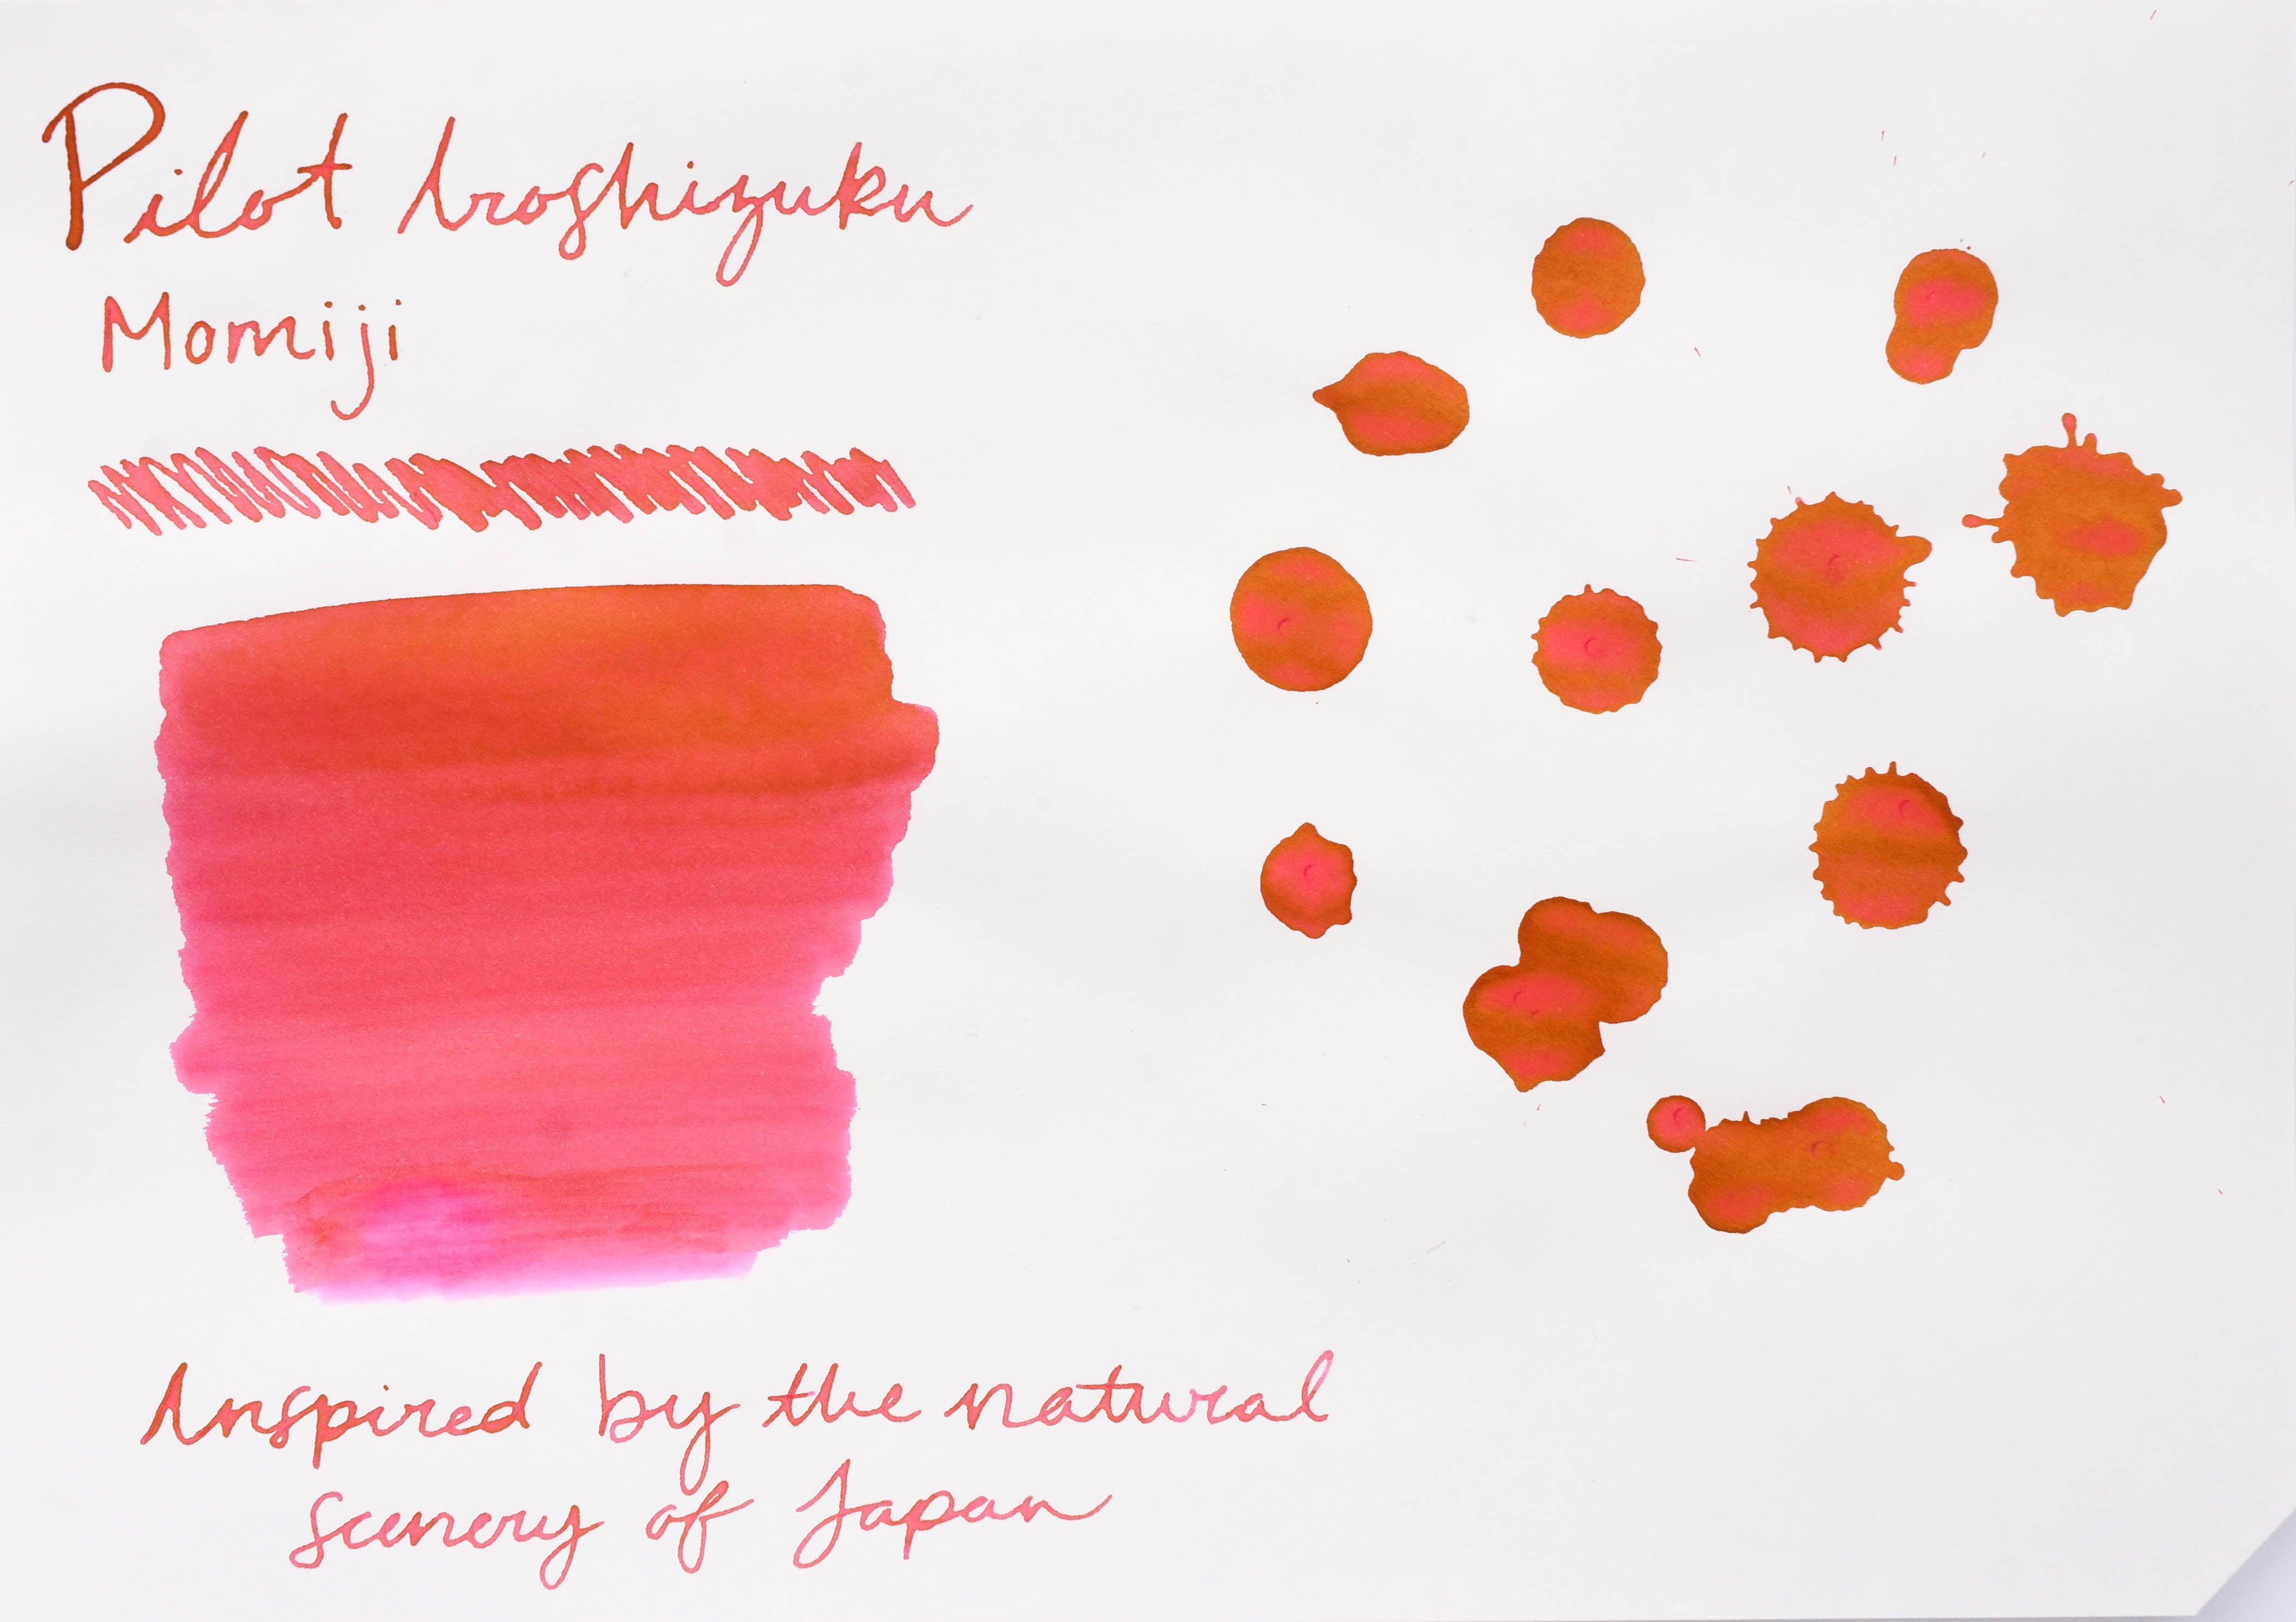 Pilot Iroshizuku
Momiji
Inspired by the natural
scenery of Japan